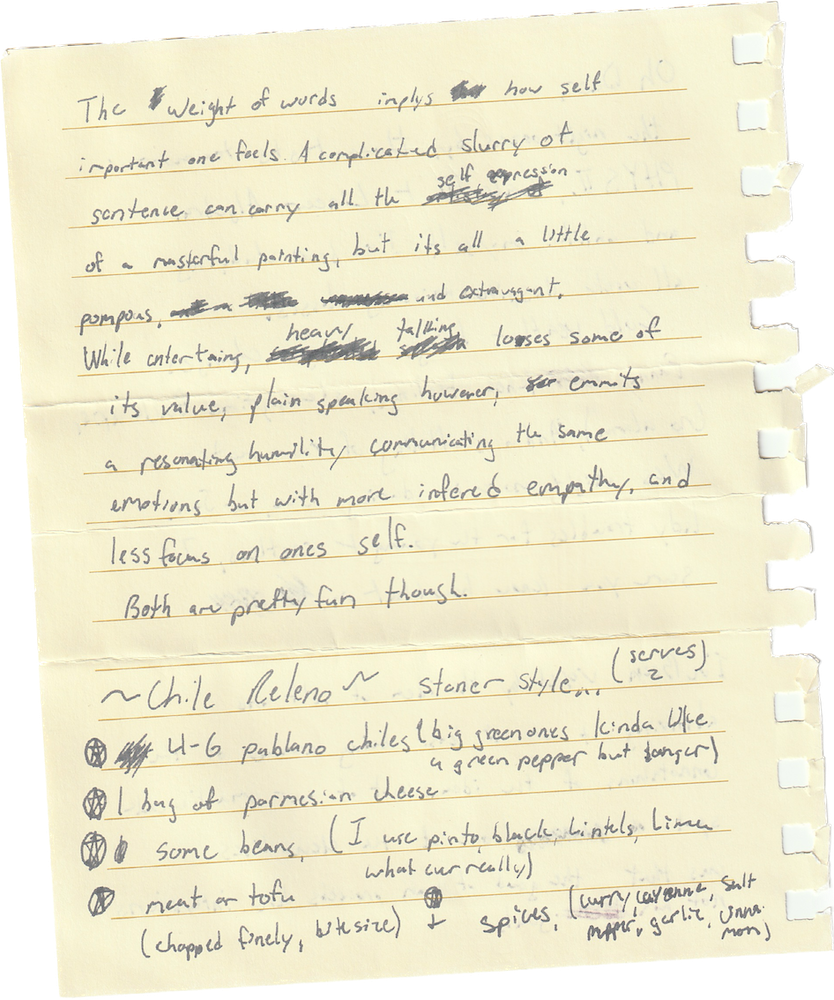 The weight of words implys how self
important one feels. A complicated slurry of
sentence can carry all the self expression
of a masterful painting, but its all a little
pompous, and extravagent.
While entertaing, heavy talking looses some of
its value, plain speaking however, emmits
a resonating humility communicating the same
emotions but with more infered empathy, and
less focus on ones self.
Both are pretty fun though.
~Chile Releno~ stoner style... (serves 2)
4-6 pablano chiles (big green ones kinda like
a green pepper but longer)
1 bag of parmesian cheese
some beans, (I use pinto, black, lintels, Lima
what cur really)
meat or tofu
(chopped finely, bite size)
+ spices, (curry, cayenne, salt
pepper, garlic, cinnamon)